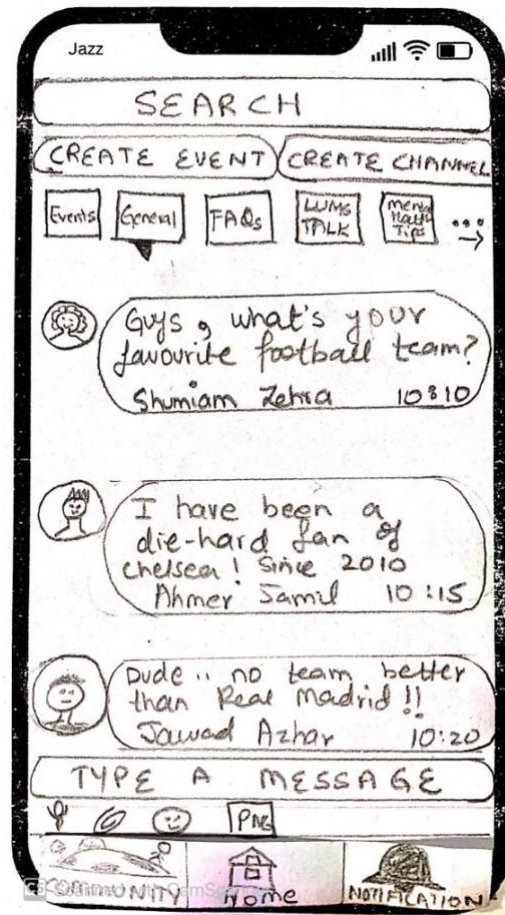 Jazz
SEARCH
CREATE EVENT CREATE CHANNEL
Events General FAQs LUMS TALK Mental Health Tips ...
Guys, what's your
favourite football team?
Shumiam Zehra 10:10
I have been a
die-hard fan of
chelsea! Since 2010
Ahmer Jamil 10:15
Dude.. no team better
than Real Madrid!!
Jawad Azhar 10:20
TYPE A MESSAGE
PNG
COMMUNITY Home NOTIFICATION
CS Scanned with CamScanner